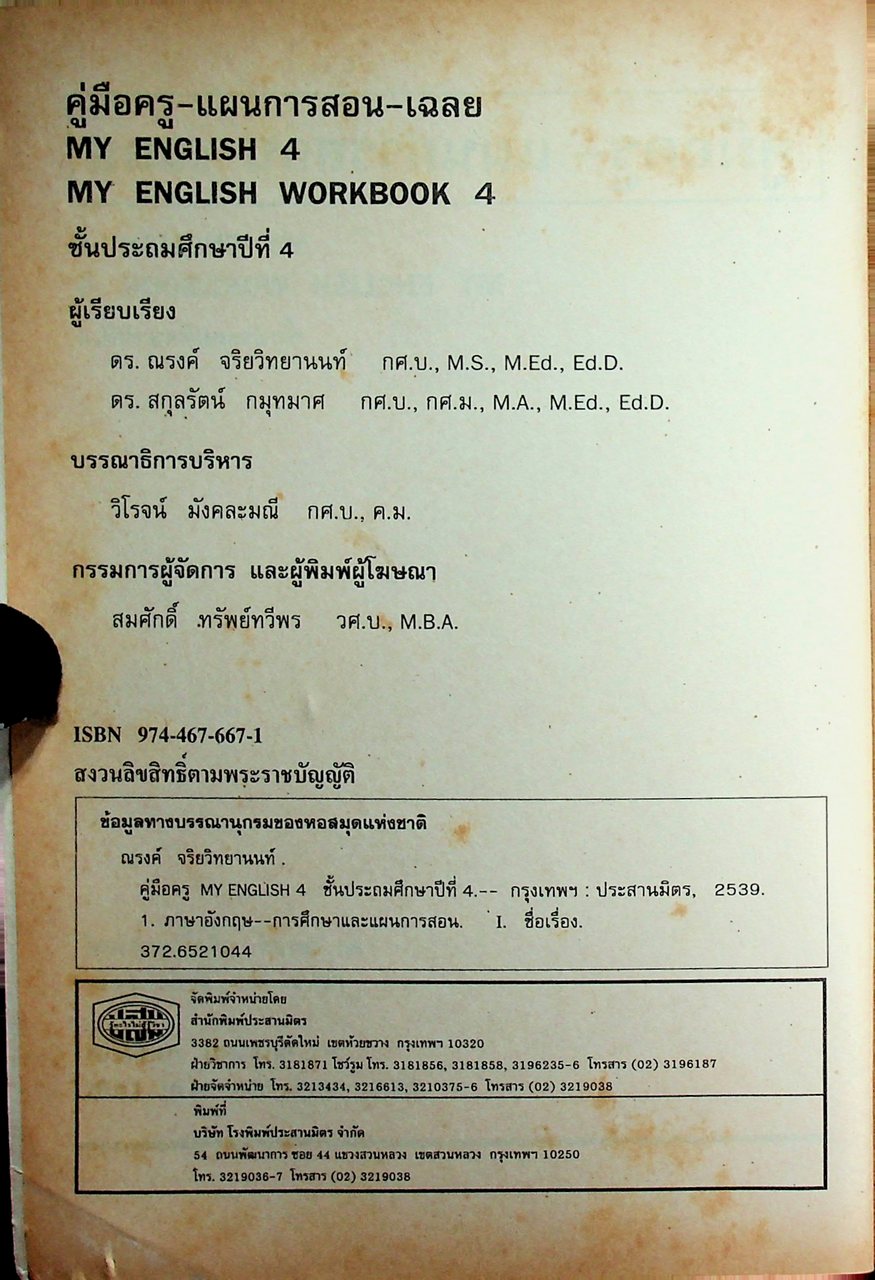 คู่มือครู-แผนการสอน-เฉลย
MY ENGLISH 4
MY ENGLISH WORKBOOK 4
ชั้นประถมศึกษาปีที่ 4
ผู้เรียบเรียง
ดร. ณรงค์ จริยวิทยานนท์ กศ.บ., M.S., M.Ed., Ed.D.
ดร. สกุลรัตน์ กมุทมาศ กศ.บ., กศ.ม., M.A., M.Ed., Ed.D.
บรรณาธิการบริหาร
วิโรจน์ มังคละมณี กศ.บ., ค.ม.
กรรมการผู้จัดการ และผู้พิมพ์ผู้โฆษณา
สมศักดิ์ ทรัพย์ทวีพร วศ.บ., M.B.A.
ISBN 974-467-667-1
สงวนลิขสิทธิ์ตามพระราชบัญญัติ
ข้อมูลทางบรรณานุกรมของหอสมุดแห่งชาติ
ณรงค์ จริยวิทยานนท์.
คู่มือครู MY ENGLISH 4 ชั้นประถมศึกษาปีที่ 4.-- กรุงเทพฯ : ประสานมิตร, 2539.
1. ภาษาอังกฤษ--การศึกษาและแผนการสอน. I. ชื่อเรื่อง.
372.6521044
จัดพิมพ์จำหน่ายโดย
สำนักพิมพ์ประสานมิตร
3382 ถนนเพชรบุรีตัดใหม่ เขตห้วยขวาง กรุงเทพฯ 10320
ฝ่ายวิชาการ โทร. 3181871 โชว์รูม โทร. 3181856, 3181858, 3196235-6 โทรสาร (02) 3196187
ฝ่ายจัดจำหน่าย โทร. 3213434, 3216613, 3210375-6 โทรสาร (02) 3219038
พิมพ์ที่
บริษัท โรงพิมพ์ประสานมิตร จำกัด
54 ถนนพัฒนาการ ซอย 44 แขวงสวนหลวง เขตสวนหลวง กรุงเทพฯ 10250
โทร. 3219036-7 โทรสาร (02) 3219038